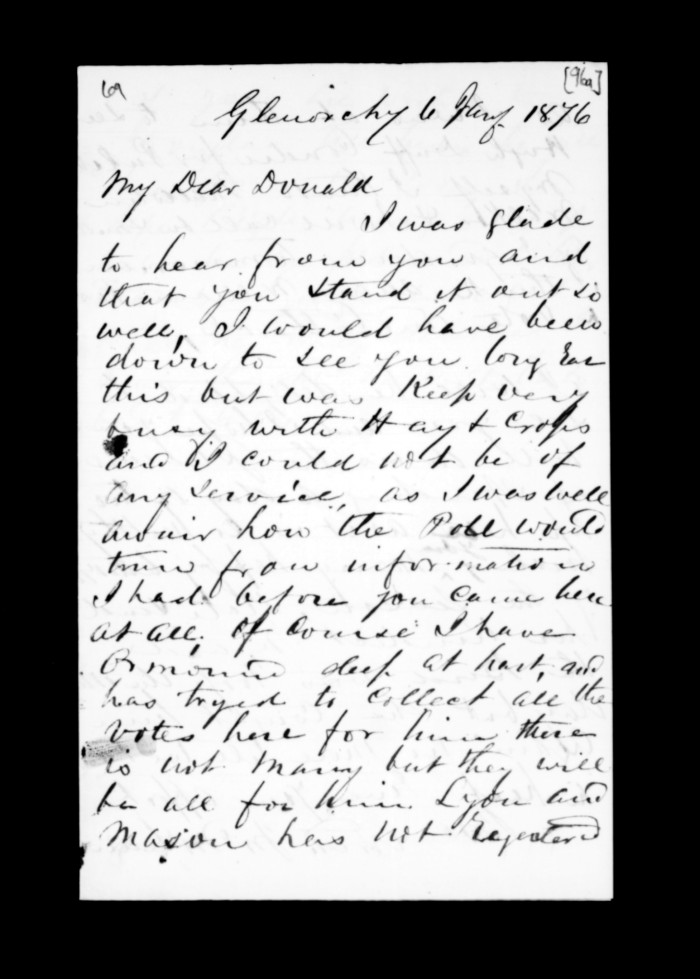 69
[96a]
Glenorchy 6 Jany 1876
My Dear Donald
I was glade
to hear from you and
that you stand it out so
well, I would have been
down to see you long Ear
this but was Keep very
busy with Hay & Crops
and I could not be of
any service, as I was well
awair how the Poll would
trun from information
I had before you came here
at all. Of Course I have
Ormound deep at hart, and
has tryed to Collect all the
votes here for him there
is not Many but they will
be all for him. Lyon and
Mason hes not